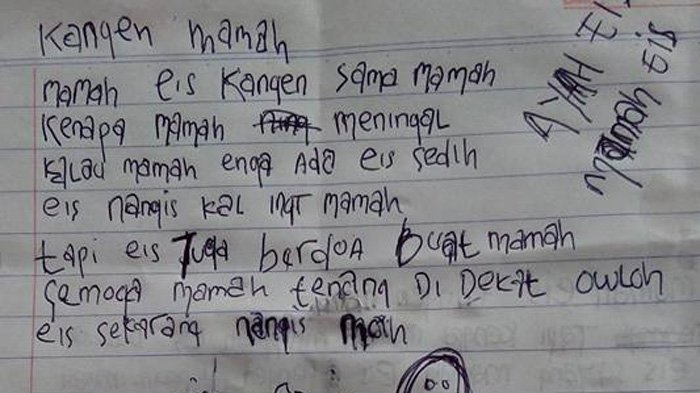 Kangen mamah
mamah eis Kangen sama mamah
Kenapa mamah meningal
kalau mamah enga Ada eis sedih
eis nangis kal ingt mamah
tapi eis Juga berdoA Buat mamah
Semoga mamah tenang Di Dekat owloh
eis sekarang nangis
AYAH EI
mamah EIS